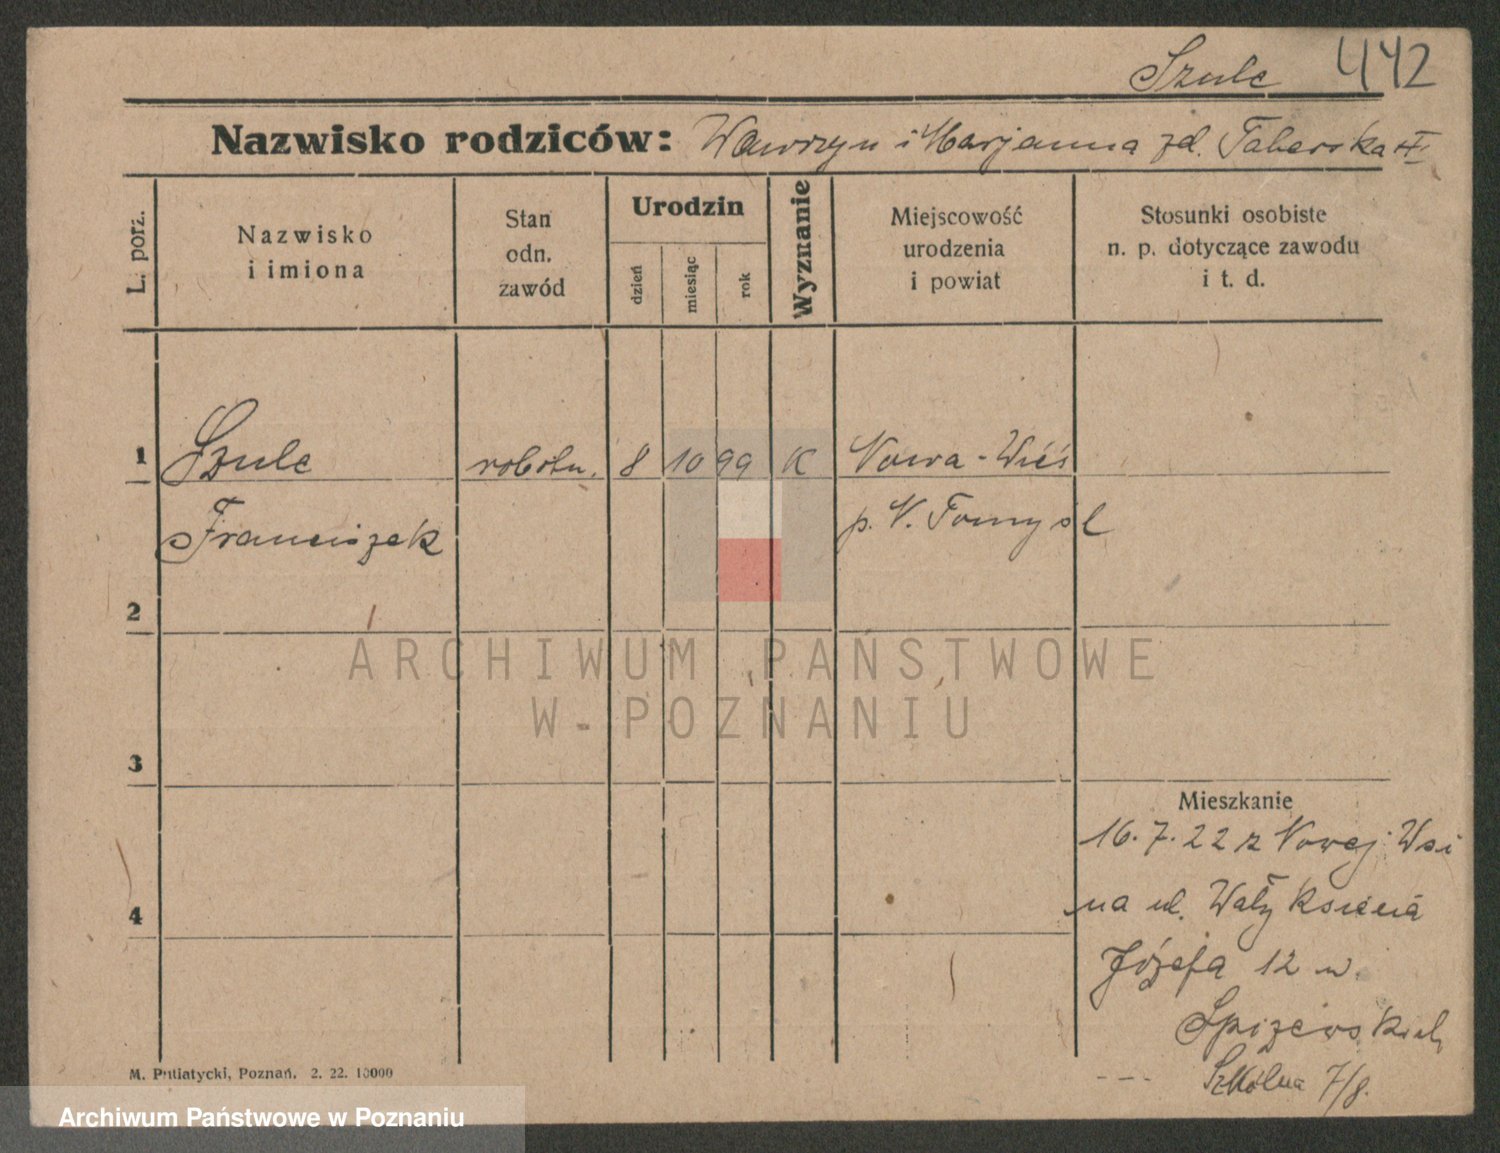 Szulc 442
Nazwisko rodziców: Wawrzyn i Marjanna zd. Taberska
L. porz.
Nazwisko
i imiona
Stan
odn.
zawód
Urodzin
dzień
miesiąc
rok
Wyznanie
Miejscowość
urodzenia
i powiat
Stosunki osobiste
n. p. dotyczące zawodu
i t. d.
1 Szulc robotn. 8 10 99 K Nowa-Wieś
Franciszek p. N. Tomysl
2
3
4
Mieszkanie
16.7.22 z Nowej Wsi
na ul. Wały Księcia
Józefa 12 u.
--- Szkólna 7/8.
M. Putiatycki, Poznań. 2. 22. 10000
ARCHIWUM PAŃSTWOWE
W POZNANIU
Archiwum Państwowe w Poznaniu